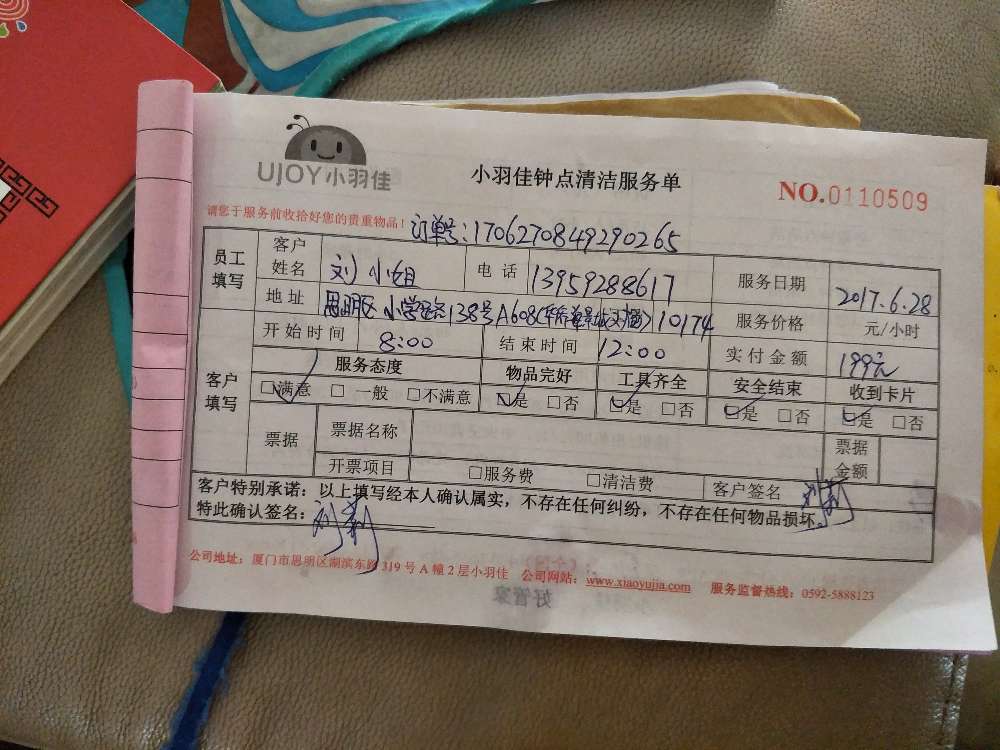 UJOY小羽佳
小羽佳钟点清洁服务单
NO.0110509
请您于服务前收拾好您的贵重物品！
订单号:1706270849290265
员工填写 客户姓名 刘小姐 电话 13959288617 服务日期 2017.6.28
地址 思明区小学路138号A608 10174 服务价格 元/小时
客户填写 开始时间 8:00 结束时间 12:00 实付金额 199元
服务态度 物品完好 工具齐全 安全结束 收到卡片
□满意 □一般 □不满意 □是 □否 □是 □否 □是 □否 □是 □否
票据 票据名称 票据金额
开票项目 □服务费 □清洁费 客户签名 刘莉
客户特别承诺：以上填写经本人确认属实，不存在任何纠纷，不存在任何物品损坏。
特此确认签名： 刘莉
公司地址：厦门市思明区湖滨东路319号A幢2层小羽佳 公司网站：www.xiaoyujia.com 服务监督热线：0592-5888123
好管家